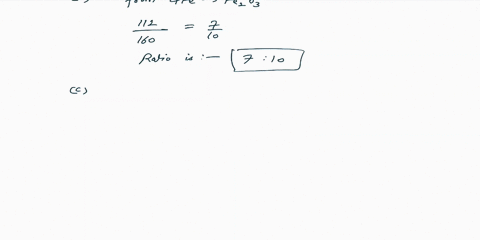 Fe₂O₃
112/160 = 7/10
Ratio is :— 7 : 10
(c)